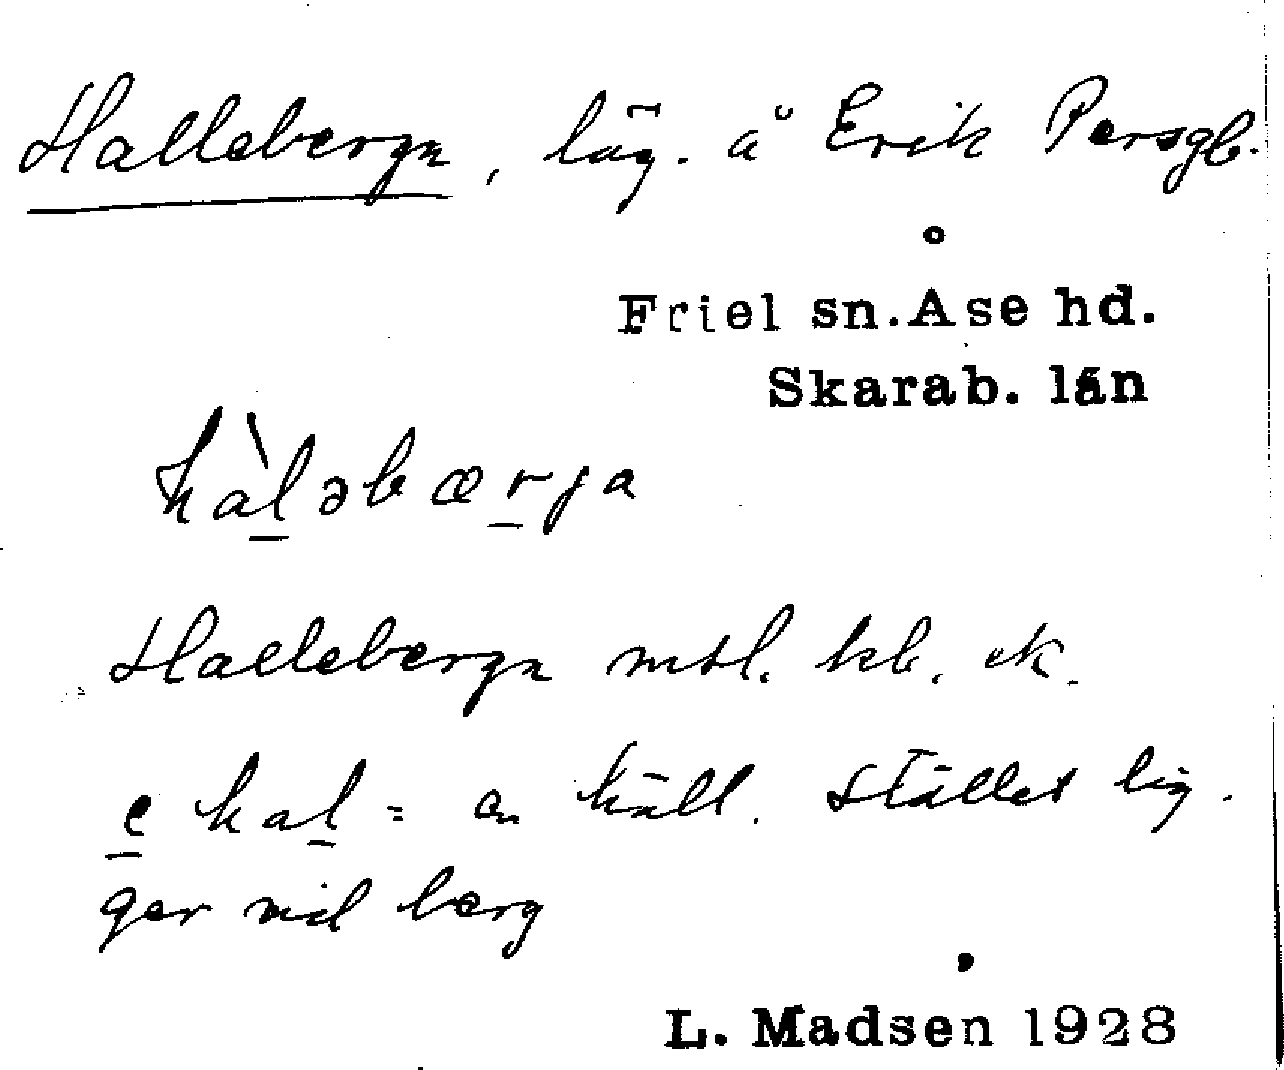 Hallebergn, läg. å Erik Persgb.
Friel sn. Åse hd.
Skarab. län
hàləbærja
Hallebergn mtl. kb. ek.
e hal = en häll. Stället lig-
ger vid berg
L. Madsen 1928